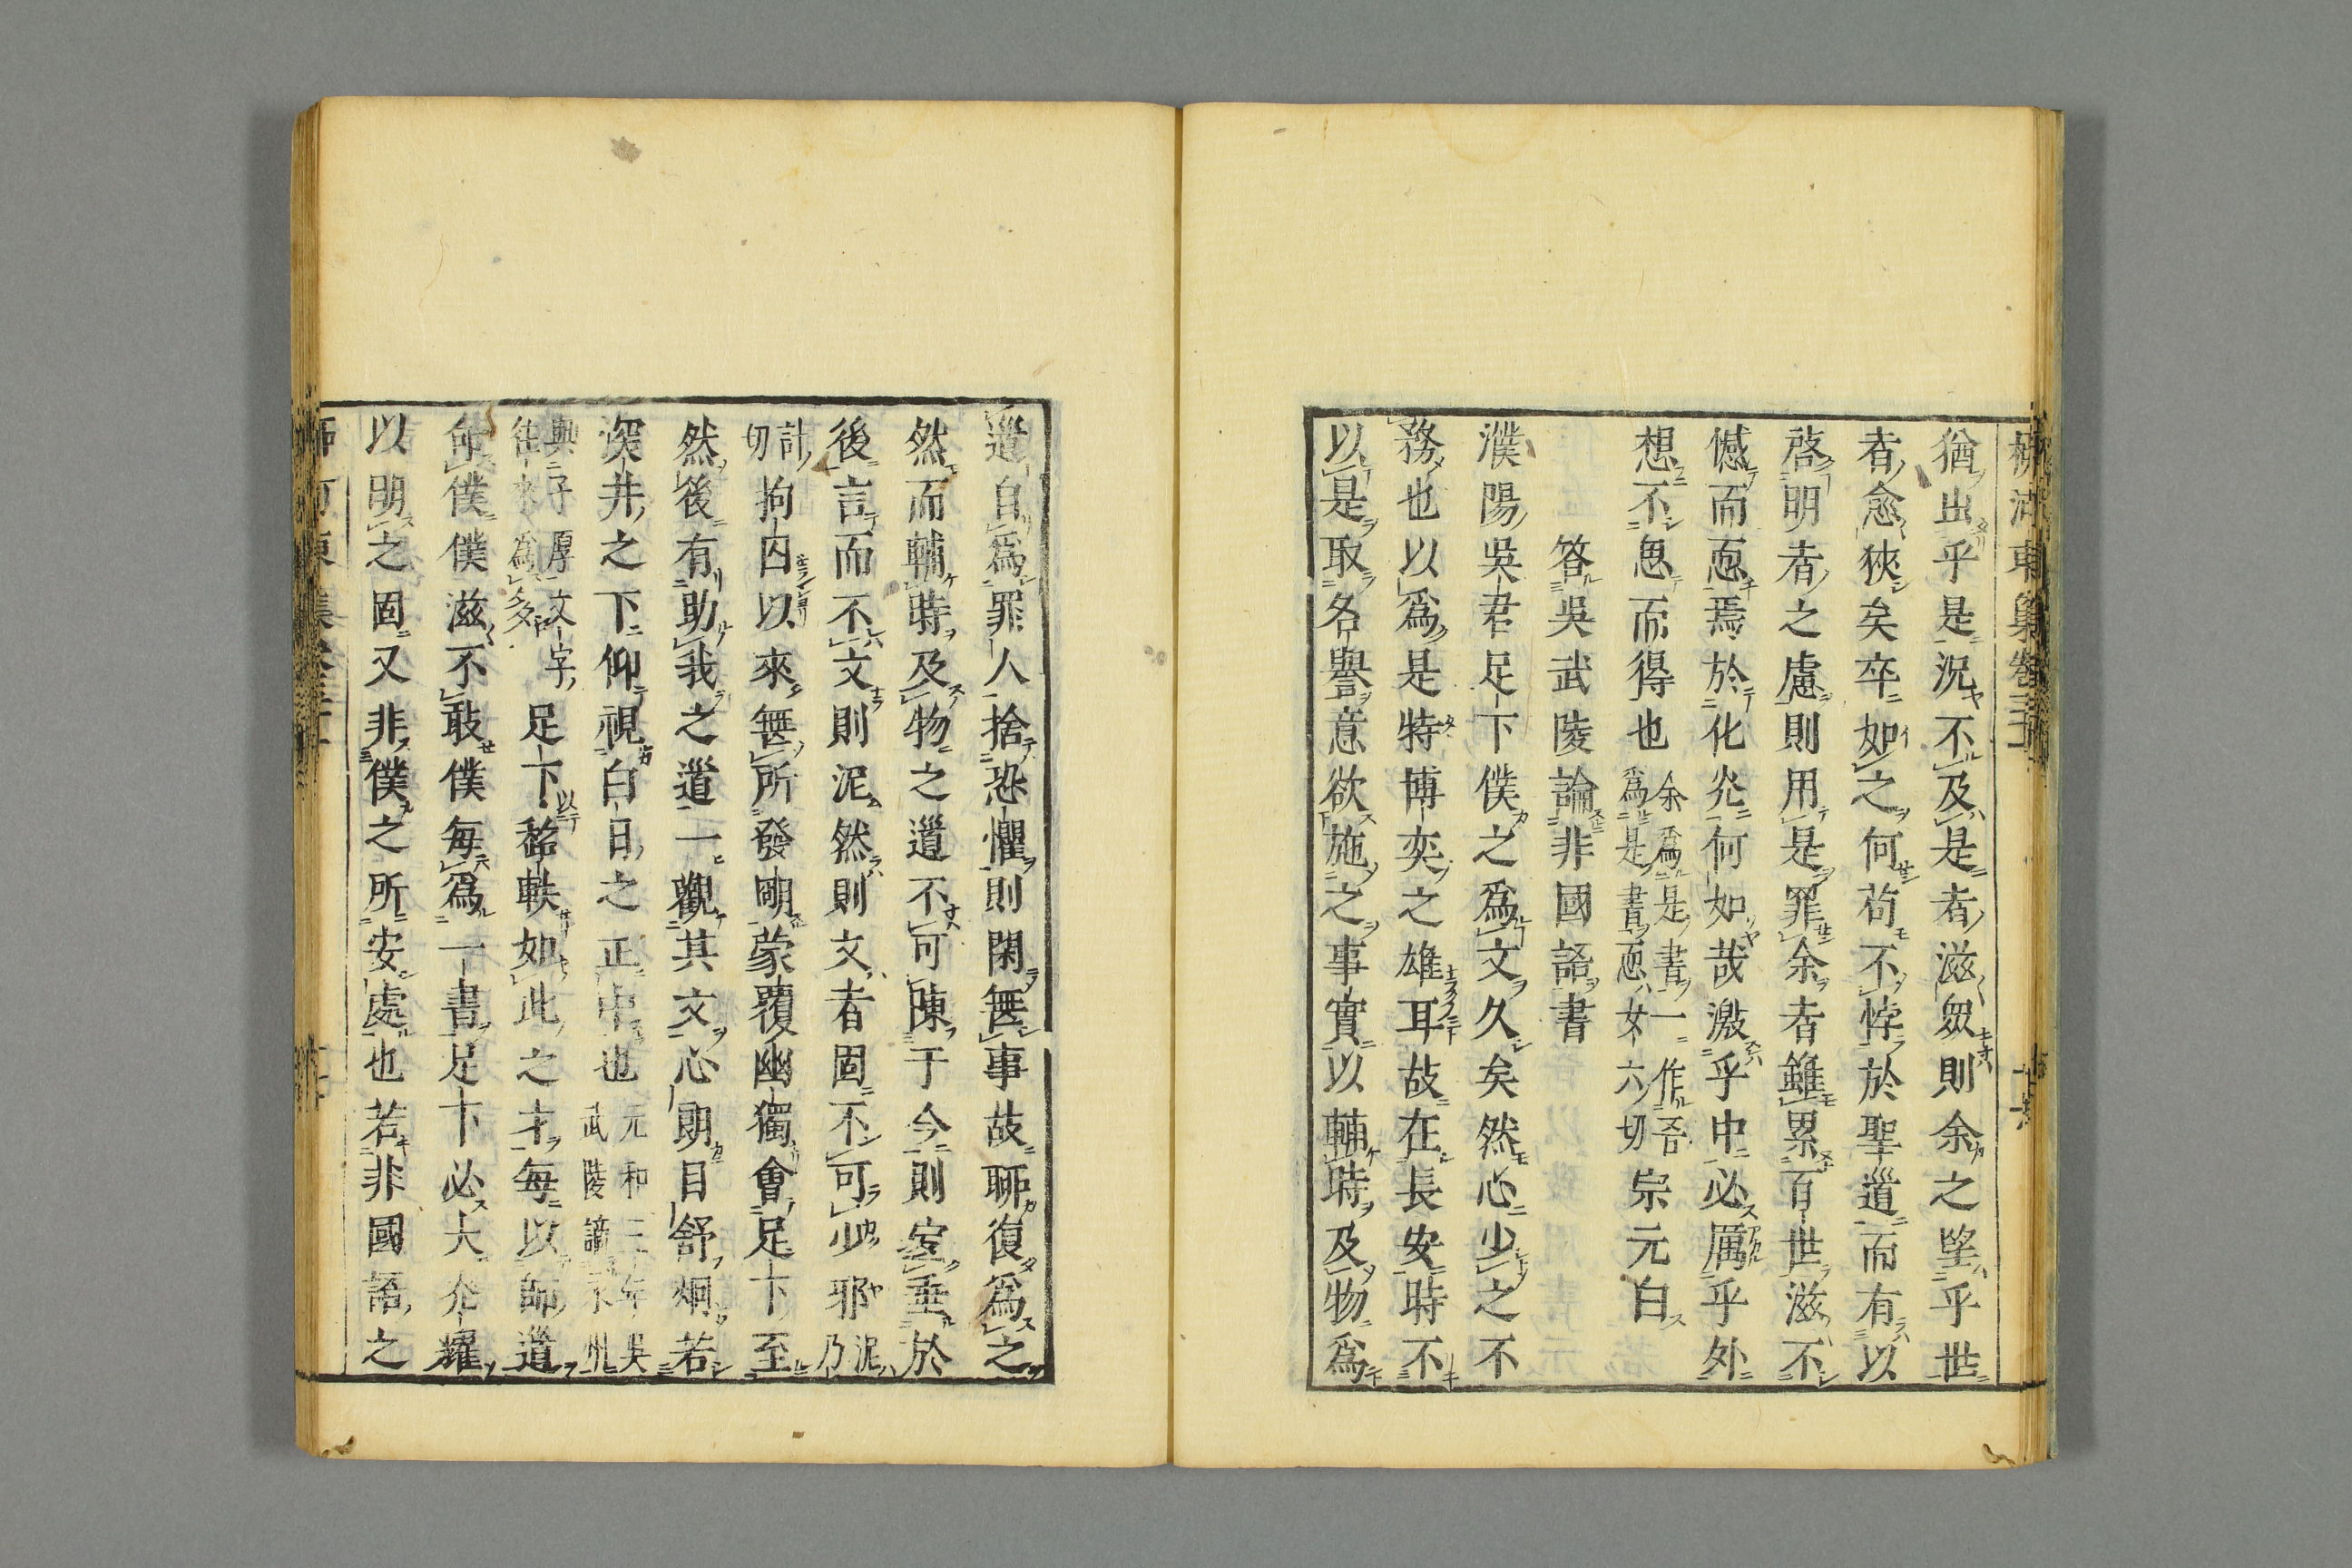 猶出乎是況不及是者滋衆則余之望乎世
者愈狹矣卒如之何苟不悖於聖道而有以
啓明者之慮則用是罪余者雖累百世滋不
憾而恧焉於化光何如哉激乎中必厲乎外
想不思而得也
余爲是書一作吾
爲是書恧女六切
宗元白
答吳武陵論非國語書
濮陽吳君足下僕之爲文久矣然心少之不
務也以爲是特博奕之雄耳故在長安時不
以是取名譽意欲施之事實以輔時及物爲
道自爲罪人捨恐懼則閑無事故聊復爲之
然而輔時及物之道不可陳于今則宜垂於
後言而不文則泥然則文者固不可少邪
泥乃
計切
拘囚以來無所發明蒙覆幽獨會足下至
然後有助我之道一觀其文心朗目舒炯若
深井之下仰視白日之正中也
元和三年吳
武陵謫永州
與子厚文字
往來爲多
足下以超軼如此之才每以師道
命僕僕滋不敢僕每爲一書足下必大光耀
以明之固又非僕之所安處也若非國語之